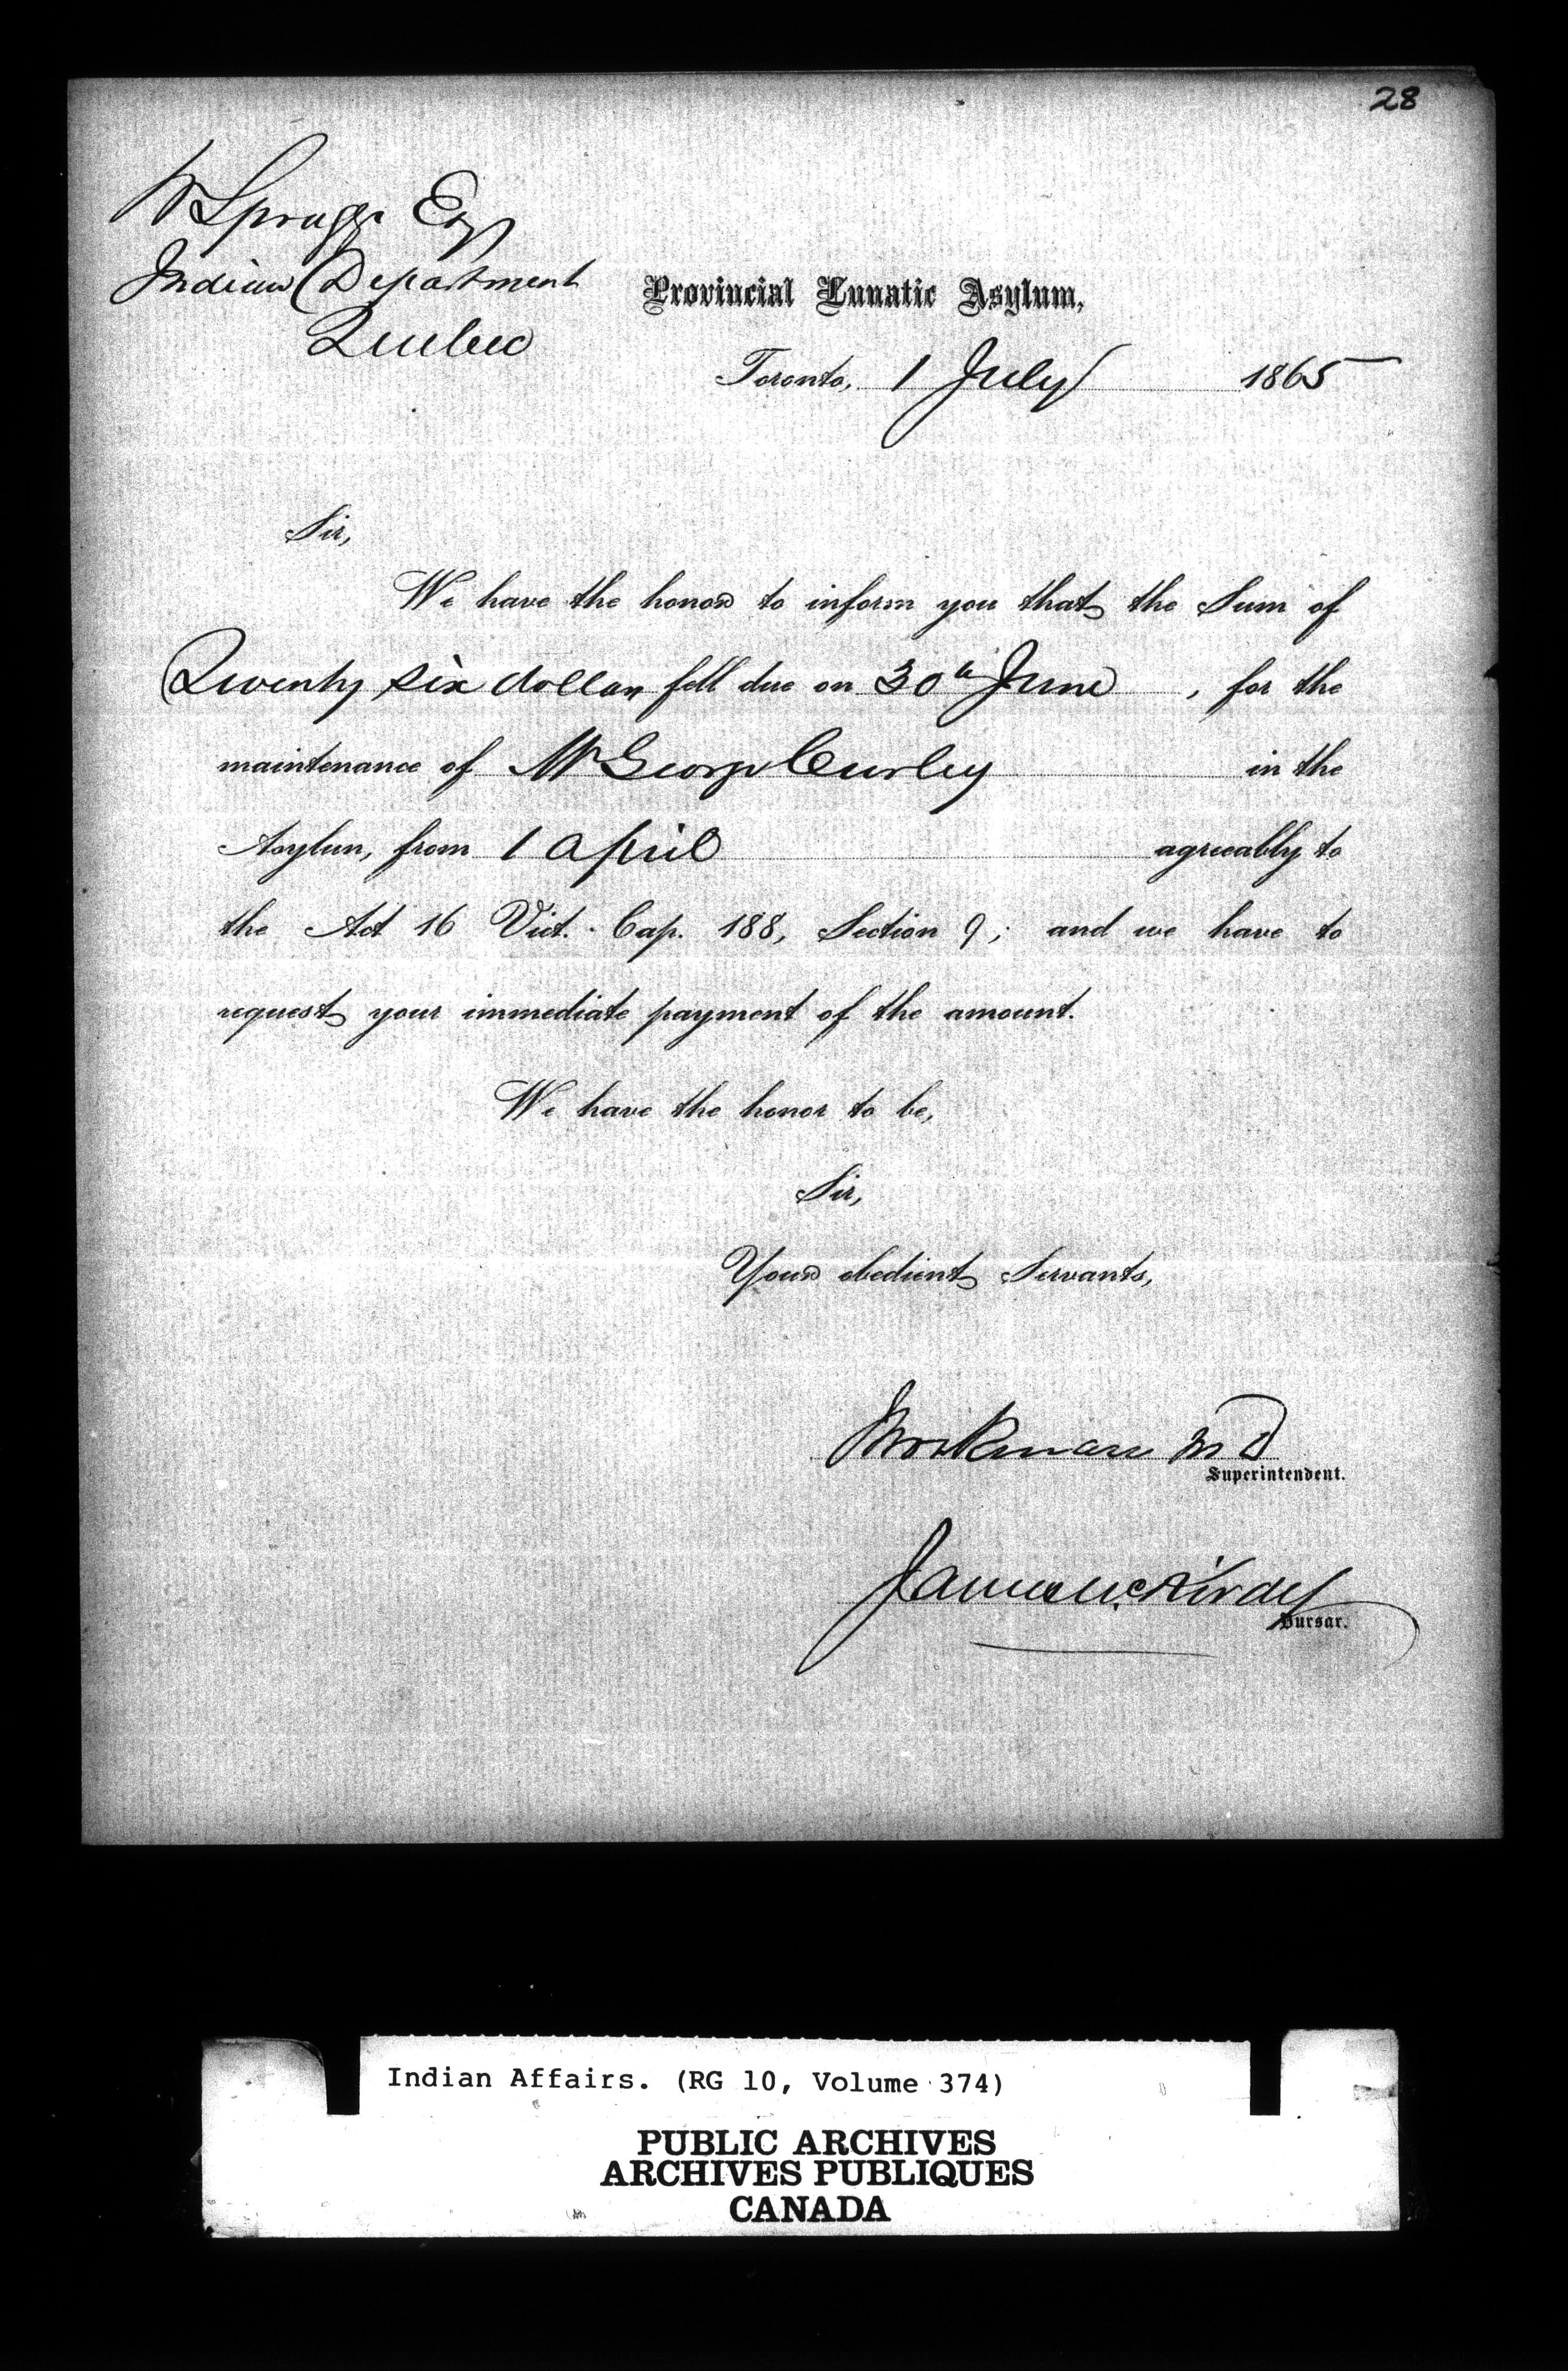 28
W Spragge Esq
Indian Department
Quebec
Provincial Lunatic Asylum,
Toronto, 1 July 1865
Sir,
We have the honor to inform you that the Sum of
Twenty six dollars fell due on 30th June , for the
maintenance of Mr George Curley in the
Asylum, from 1 April agreeably to
the Act 16 Vict. Cap. 188, Section 9; and we have to
request your immediate payment of the amount.
We have the honor to be,
Sir,
Your obedient Servants,
J Workman M D
Superintendent.
James McKirdy
Bursar.
Indian Affairs. (RG 10, Volume 374)
PUBLIC ARCHIVES
ARCHIVES PUBLIQUES
CANADA